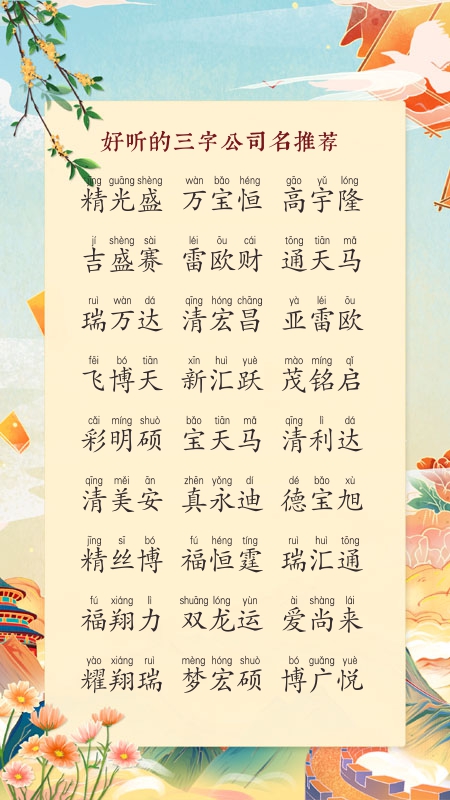 好听的三字公司名推荐
jīng guāng shèng wàn bǎo héng gāo yǔ lóng
精光盛 万宝恒 高宇隆
jí shèng sài léi ōu cái tōng tiān mǎ
吉盛赛 雷欧财 通天马
ruì wàn dá qīng hóng chāng yà léi ōu
瑞万达 清宏昌 亚雷欧
fēi bó tiān xīn huì yuè mào míng qǐ
飞博天 新汇跃 茂铭启
cǎi míng shuò bǎo tiān mǎ qīng lì dá
彩明硕 宝天马 清利达
qīng měi ān zhēn yǒng dí dé bǎo xù
清美安 真永迪 德宝旭
jīng sī bó fú héng tíng ruì huì tōng
精丝博 福恒霆 瑞汇通
fú xiáng lì shuāng lóng yùn ài shàng lái
福翔力 双龙运 爱尚来
yào xiáng ruì mèng hóng shuò bó guǎng yuè
耀翔瑞 梦宏硕 博广悦